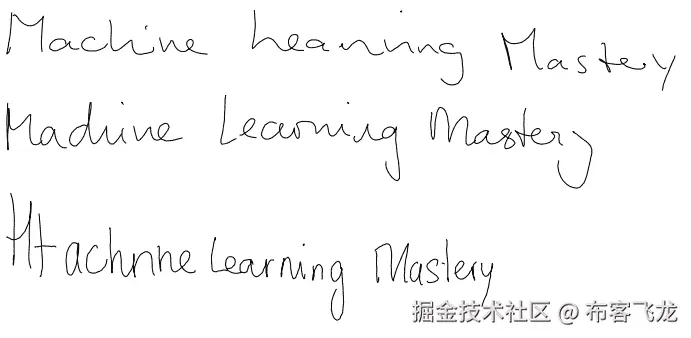 Machine Learning Mastery
Machine Learning Mastery
Mtachnne Learning Mastery
掘金技术社区 @ 布客飞龙